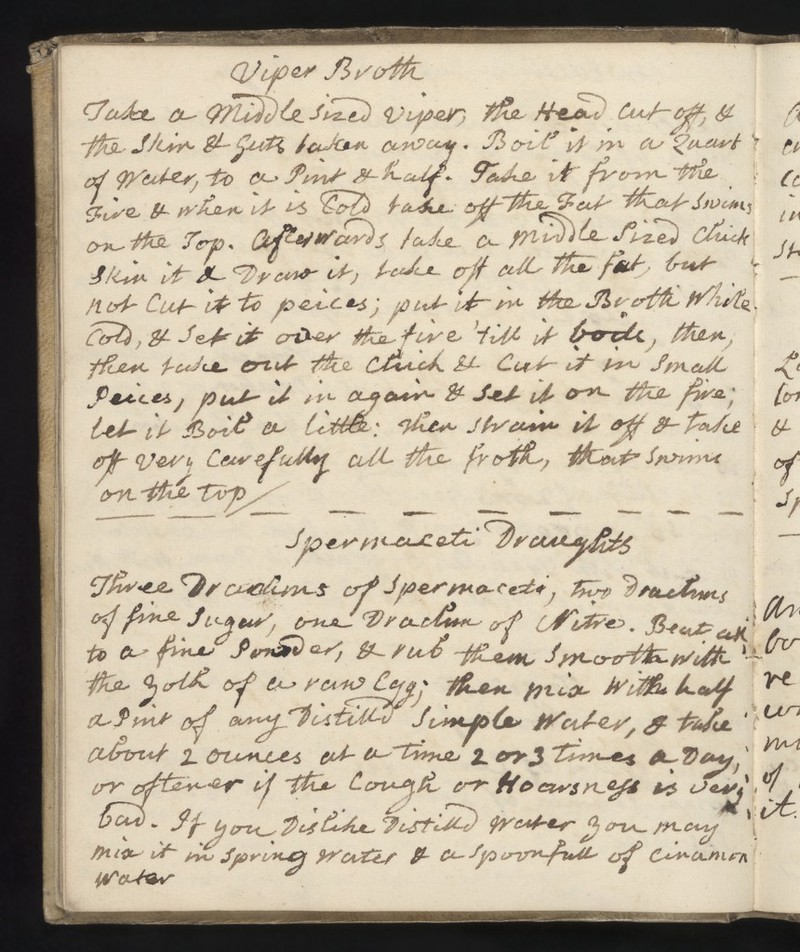 Viper Broth
Take a Middle sized Viper, the Head cut off, &
the Skin & Guts taken away. Boil it in a Quart
of Water, to a Pint & half. Take it from the
Fire & when it is Cold take off the Fat that Swims
on the Top. Afterwards take a Middle Sized Chick
Skin it & Draw it, take off all the fat, but
not Cut it to peices; put it in the Broth while
Cold, & Set it over the fire 'till it boils, then,
then take out the Chick & Cut it in Small
Peices, put it in again & Set it on the fire;
let it Boil a little: then strain it off & take
off Very Carefully all the froth, that Swims
on the top
Spermaceti Draughts
Three Drachms of Spermaceti, two Drachms
of fine Sugar, one Drachm of Nitre. Beat all
to a fine Powder, & rub them Smooth with
the Yolk of a raw Egg; then mix with half
a Pint of any Distill'd Simple Water, & take
about 2 ounces at a time 2 or 3 times a Day,
or oftener if the Cough or Hoarsness is Very
bad. If you Dislike Distill'd Water you may
mix it in Spring Water & a Spoonfull of Cinamon
Water